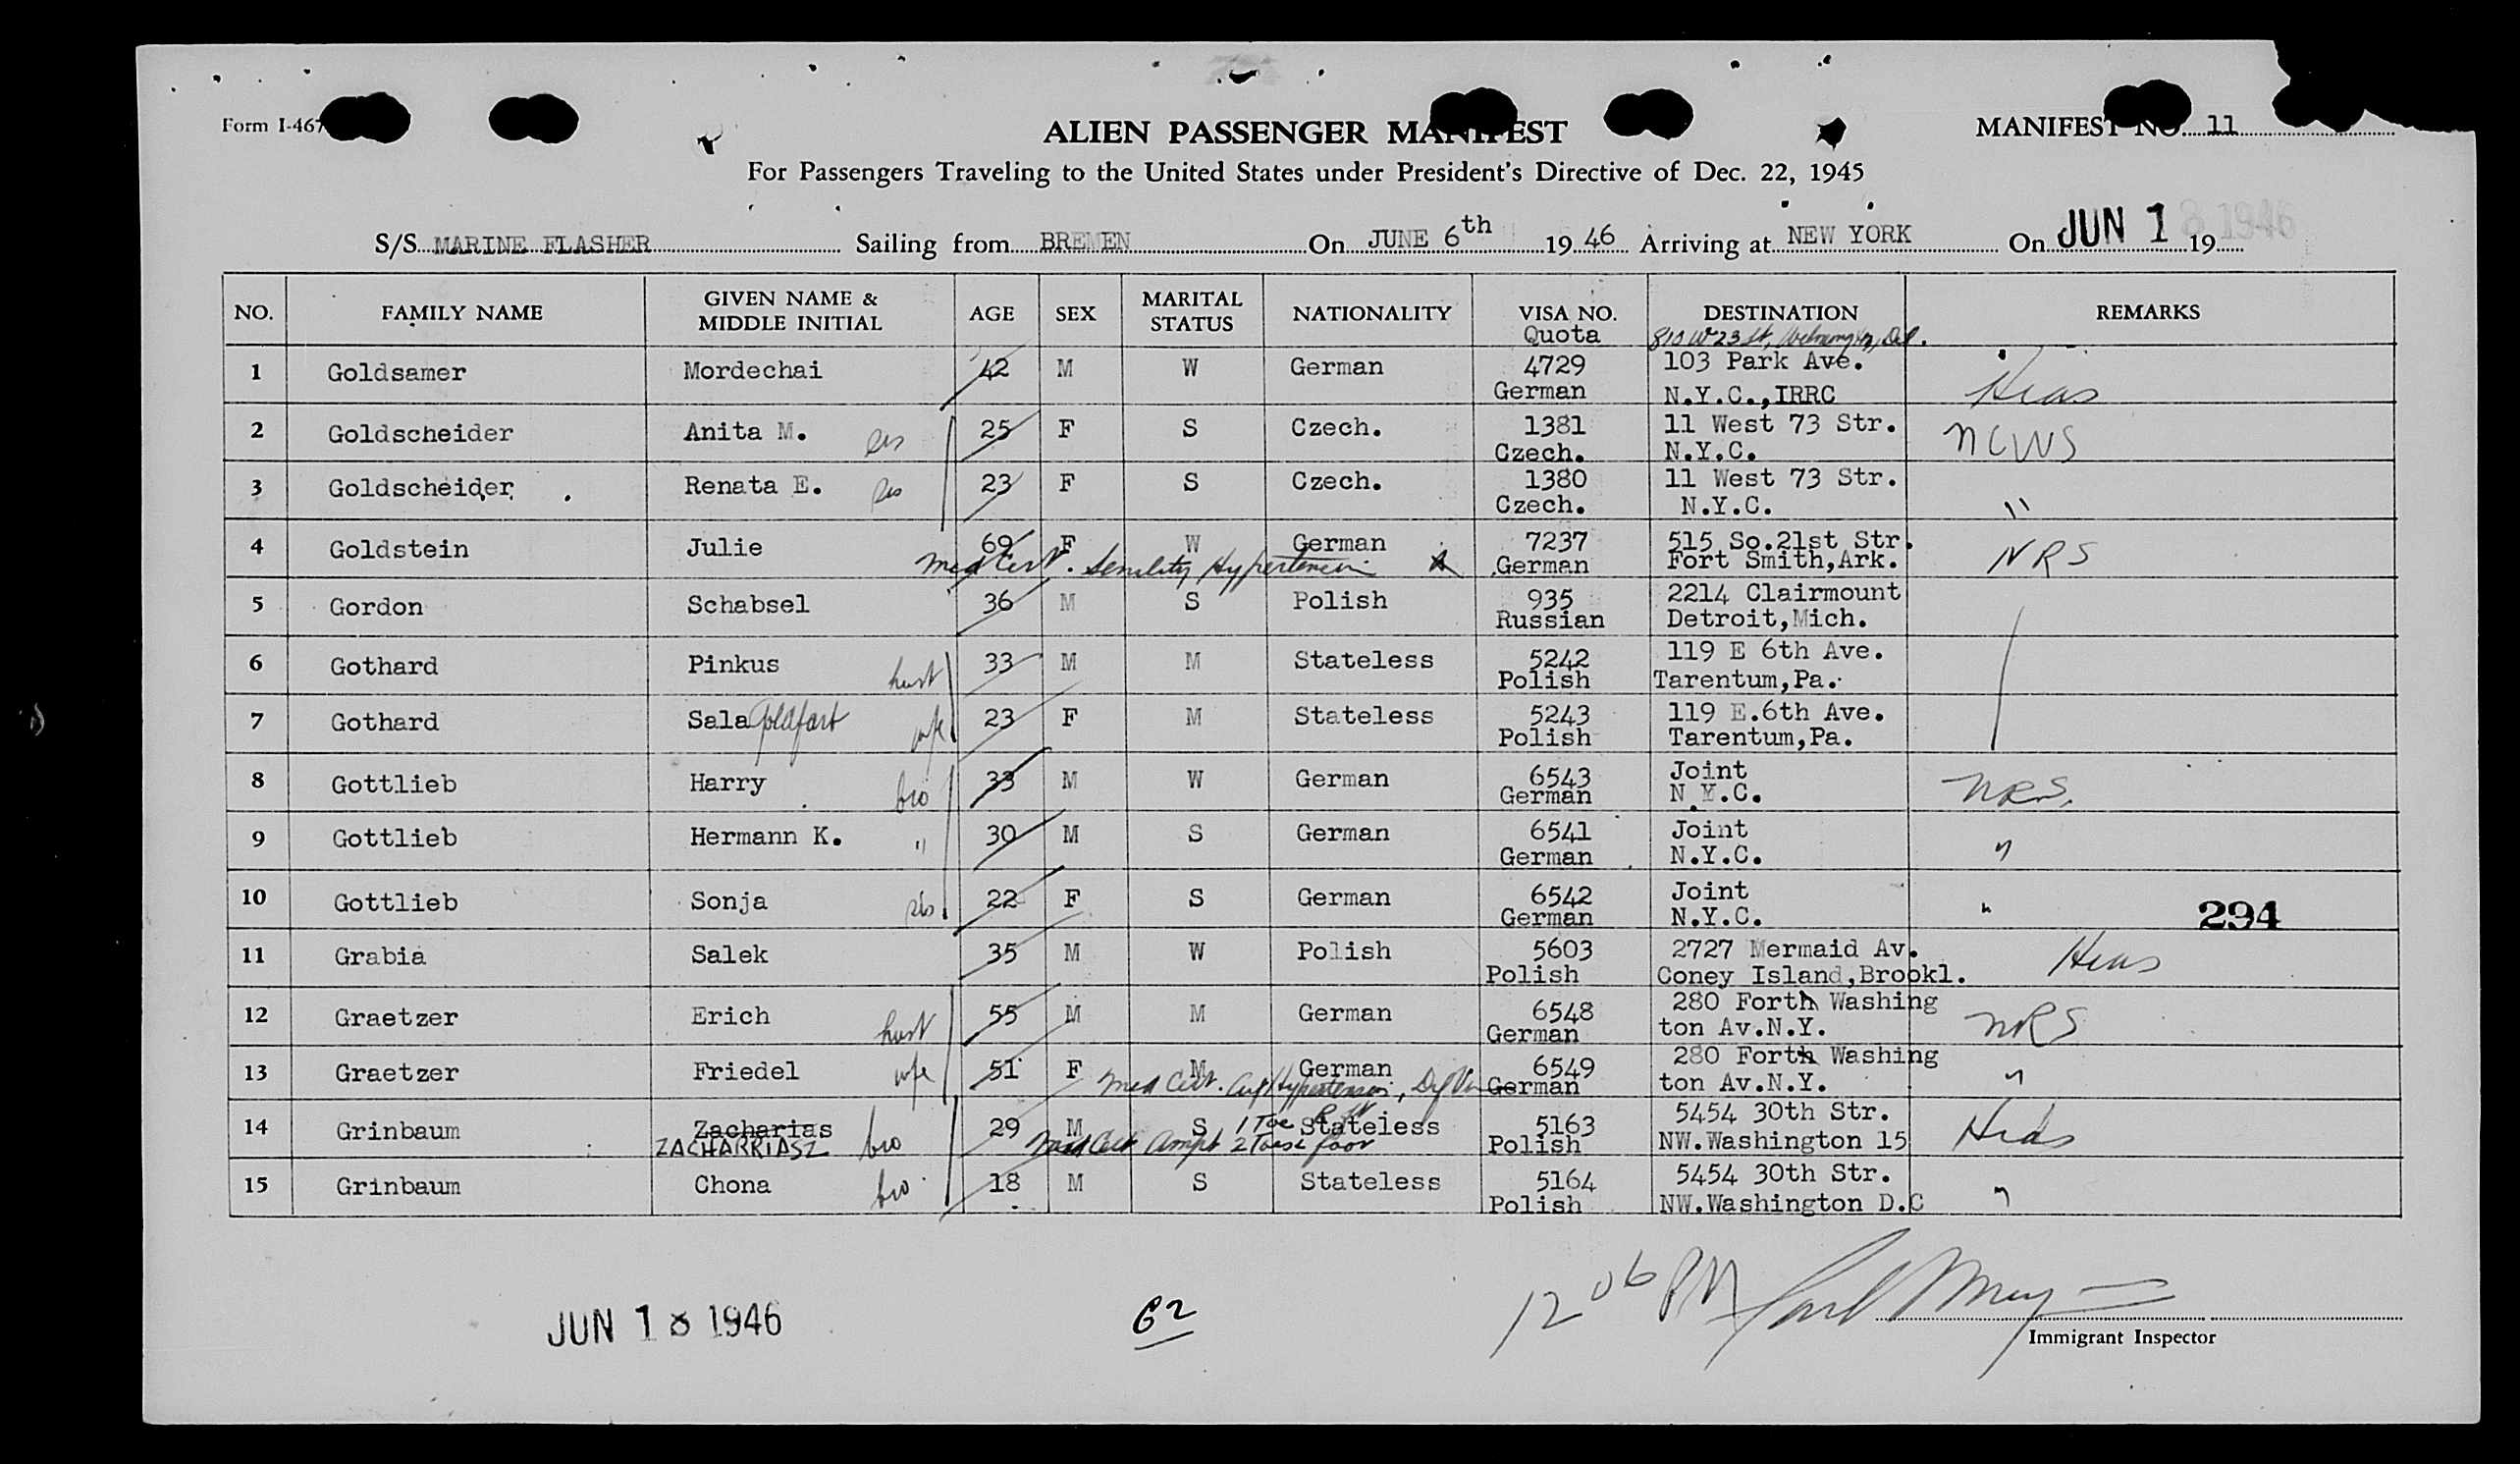 Form I-467
ALIEN PASSENGER MANIFEST
MANIFEST NO. 11
For Passengers Traveling to the United States under President's Directive of Dec. 22, 1945
S/S MARINE FLASHER Sailing from BREMEN On JUNE 6th 19 46 Arriving at NEW YORK On JUN 18 1946 19
NO. FAMILY NAME GIVEN NAME & MIDDLE INITIAL AGE SEX MARITAL STATUS NATIONALITY VISA NO. Quota DESTINATION REMARKS
810 W 23 St, Wilmington, Del.
1 Goldsamer Mordechai 42 M W German 4729 103 Park Ave. Hias
German N.Y.C.,IRRC
2 Goldscheider Anita M. sis 25 F S Czech. 1381 11 West 73 Str. NCWS
Czech. N.Y.C.
3 Goldscheider Renata E. sis 23 F S Czech. 1380 11 West 73 Str. "
Czech. N.Y.C.
4 Goldstein Julie 69 F W German 7237 515 So.21st Str. NRS
Med Cert. Senility Hypertension German Fort Smith,Ark.
5 Gordon Schabsel 36 M S Polish 935 2214 Clairmount
Russian Detroit,Mich.
6 Gothard Pinkus husb 33 M M Stateless 5242 119 E 6th Ave.
Polish Tarentum,Pa.
7 Gothard Sala Goldfart wife 23 F M Stateless 5243 119 E.6th Ave.
Polish Tarentum,Pa.
8 Gottlieb Harry bro 33 M W German 6543 Joint NRS.
German N.Y.C.
9 Gottlieb Hermann K. " 30 M S German 6541 Joint "
German N.Y.C.
10 Gottlieb Sonja sis 22 F S German 6542 Joint "
German N.Y.C. 294
11 Grabia Salek 35 M W Polish 5603 2727 Mermaid Av. Hias
Polish Coney Island,Brookl.
12 Graetzer Erich husb 55 M M German 6548 280 Forth Washing NRS
German ton Av.N.Y.
13 Graetzer Friedel wife 51 F M German 6549 280 Forth Washing "
Med Cert. Hypertension, German ton Av.N.Y.
14 Grinbaum Zacharias bro 29 M S Stateless 5163 5454 30th Str. Hias
1 Toe R Ft
ZACHARRIASZ Med Cert Ampt 2 Toes L foot Polish NW.Washington 15
15 Grinbaum Chona bro 18 M S Stateless 5164 5454 30th Str. "
Polish NW.Washington D.C
JUN 18 1946
62
12 06 PM
Immigrant Inspector